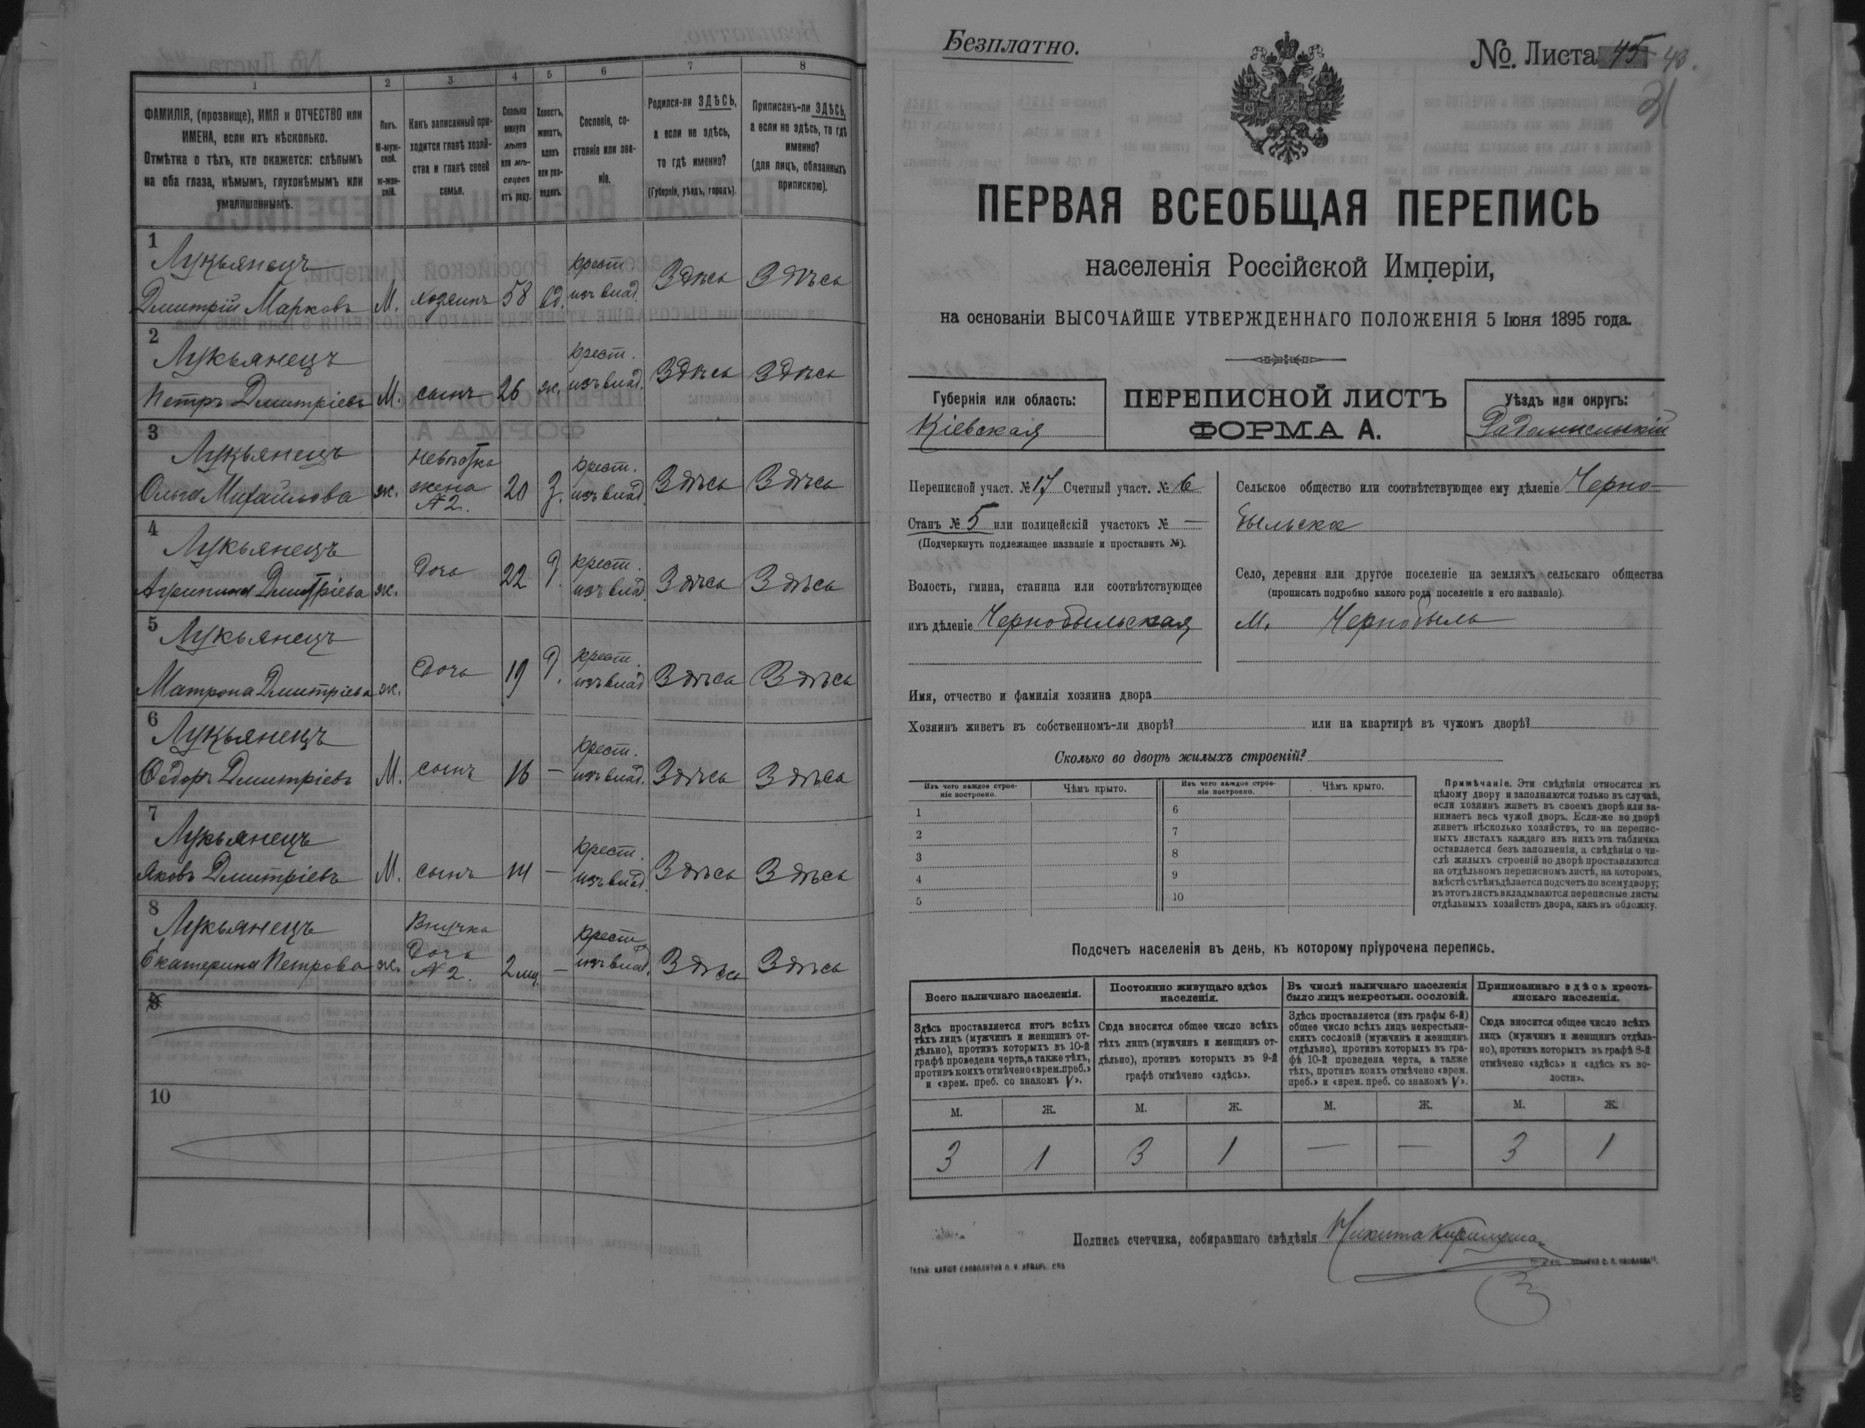 1
2
3
4
5
6
7
8
ФАМИЛІЯ, (прозвище), ИМЯ и ОТЧЕСТВО или
ИМЕНА, если ихъ нѣсколько.
Отмѣтка о тѣхъ, кто окажется: слѣпымъ
на оба глаза, нѣмымъ, глухонѣмымъ или
умалишеннымъ.
Полъ.
М-муж-
ской.
ж-жен-
скій.
Какъ записанный при-
ходится главѣ хозяй-
ства и главѣ своей
семьи.
Сколько
минуло
лѣтъ
или мѣ-
сяцевъ
отъ роду.
Холостъ,
женатъ,
вдовъ
или раз-
веденъ.
Сословіе, со-
стояніе или зва-
ніе.
Родился-ли ЗДѢСЬ,
а если не здѣсь,
то гдѣ именно?
(Губернія, уѣздъ, городъ).
Приписанъ-ли ЗДѢСЬ,
а если не здѣсь, то гдѣ
именно?
(для лицъ, обязанныхъ
припискою).
1
Лукьянецъ
Дмитрій Марковъ М. хозяинъ 58 вд. крест. изъ влад. Здѣсь Здѣсь
2
Лукьянецъ
Петръ Дмитріевъ М. сынъ 26 ж. крест. изъ влад. Здѣсь Здѣсь
3
Лукьянецъ
Ольга Михайлова ж. невѣстка жена №2. 20 З. крест. изъ влад. Здѣсь Здѣсь
4
Лукьянецъ
Агрипина Дмитріева ж. дочь 22 Д. крест. изъ влад. Здѣсь Здѣсь
5
Лукьянецъ
Матрона Дмитріева ж. дочь 19 Д. крест. изъ влад. Здѣсь Здѣсь
6
Лукьянецъ
Ѳедоръ Дмитріевъ М. сынъ 16 — крест. изъ влад. Здѣсь Здѣсь
7
Лукьянецъ
Яковъ Дмитріевъ М. сынъ 14 — крест. изъ влад. Здѣсь Здѣсь
8
Лукьянецъ
Екатерина Петрова ж. Внучка дочь №2. 2 мѣ. — крест. изъ влад. Здѣсь Здѣсь
9
10
Безплатно.
№. Листа 45 40.
ПЕРВАЯ ВСЕОБЩАЯ ПЕРЕПИСЬ
населенія Россійской Имперіи,
на основаніи ВЫСОЧАЙШЕ УТВЕРЖДЕННАГО ПОЛОЖЕНІЯ 5 Іюня 1895 года.
Губернія или область:
Кіевская
ПЕРЕПИСНОЙ ЛИСТЪ
ФОРМА А.
Уѣздъ или округъ:
Радомысльскій
Переписной участ. № 17 Счетный участ. № 6
Станъ № 5 или полицейскій участокъ № —
(Подчеркнуть подлежащее названіе и проставить №).
Волость, гмина, станица или соотвѣтствующее
имъ дѣленіе Чернобыльская
Сельское общество или соотвѣтствующее ему дѣленіе Черно-
быльское
Село, деревня или другое поселеніе на земляхъ сельскаго общества
(прописать подробно какого рода поселеніе и его названіе).
М. Чернобыль
Имя, отчество и фамилія хозяина двора
Хозяинъ живетъ въ собственномъ-ли дворѣ? или на квартирѣ въ чужомъ дворѣ?
Сколько во дворѣ жилыхъ строеній?
Изъ чего каждое строе-
ніе построено.
Чѣмъ крыто.
Изъ чего каждое строе-
ніе построено.
Чѣмъ крыто.
1 6
2 7
3 8
4 9
5 10
Примѣчаніе. Эти свѣдѣнія относятся къ
цѣлому двору и заполняются только въ случаѣ,
если хозяинъ живетъ въ своемъ дворѣ или за-
нимаетъ весь чужой дворъ. Если-же во дворѣ
живетъ нѣсколько хозяйствъ, то на перепис-
ныхъ листахъ каждаго изъ нихъ эта табличка
оставляется безъ заполненія, а свѣдѣнія о чи-
слѣ жилыхъ строеній во дворѣ проставляются
на отдѣльномъ переписномъ листѣ, на которомъ
вмѣстѣ съ тѣмъ дѣлается подсчетъ по всему двору;
въ этотъ листъ вкладываются переписные листы
отдѣльныхъ хозяйствъ двора, какъ въ обложку.
Подсчетъ населенія въ день, къ которому пріурочена перепись.
Всего наличнаго населенія.
Постоянно живущаго здѣсь
населенія.
Въ числѣ наличнаго населенія
было лицъ некрестьян. сословій.
Приписаннаго здѣсь кресть-
янскаго населенія.
Здѣсь проставляется итогъ всѣхъ
тѣхъ лицъ (мужчинъ и женщинъ от-
дѣльно), противъ которыхъ въ 10-й
графѣ проведена черта, а также тѣхъ,
противъ коихъ отмѣчено «врем. преб.»
и «врем. преб. со знакомъ V».
Сюда вносится общее число всѣхъ
тѣхъ лицъ (мужчинъ и женщинъ от-
дѣльно), противъ которыхъ въ 9-й
графѣ отмѣчено «здѣсь».
Здѣсь проставляется (изъ графы 6-й)
общее число всѣхъ лицъ некрестьян-
скихъ сословій (мужчинъ и женщинъ
отдѣльно), противъ которыхъ въ гра-
фѣ 10-й проведена черта, а также
тѣхъ, противъ коихъ отмѣчено «врем.
преб.» и «врем. преб. со знакомъ V».
Сюда вносится общее число всѣхъ
лицъ (мужчинъ и женщинъ отдѣль-
но), противъ которыхъ въ графѣ 8-й
отмѣчено «здѣсь» и «здѣсь въ во-
лости».
М. Ж. М. Ж. М. Ж. М. Ж.
3 1 3 1 — — 3 1
Подпись счетчика, собиравшаго свѣдѣнія Никита